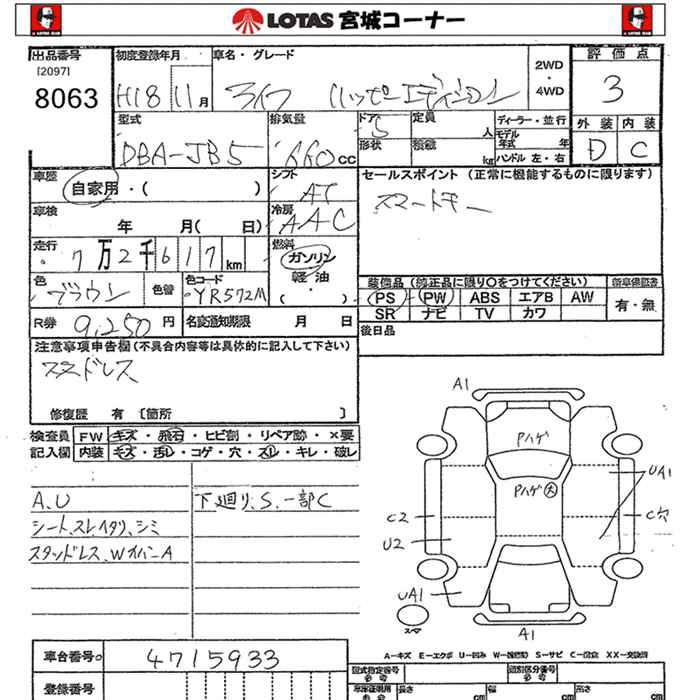 LOTAS 宮城コーナー
出品番号 初度登録年月 車名・グレード 2WD ・ 4WD 評価点
[2097]
8063 H18 11月 ライフ ハッピーエディション 3
型式 排気量 ドア 定員 ディーラー・並行 外装 内装
DBA-JB5 660cc 5 人 モデル年式 年 D C
形状 積載 kg ハンドル 左・右
車歴 自家用・( ) シフト AT セールスポイント (正常に機能するものに限ります)
車検 年 月(日) 冷房 AAC スマートキー
走行 7万2千617km 燃料 ガソリン 軽油・( )
色 ブラウン 色替 色コード YR572M
装備品(純正品に限り○をつけてください) 新車保証書
PS PW ABS エアB AW 有・無
SR ナビ TV カワ
R券 9,250円 名変通知期限 月 日 後日品
注意事項申告欄(不具合内容等は具体的に記入して下さい)
スタドレス
修復歴 有 [箇所 ]
検査員 FW キズ・飛石・ヒビ割・リペア跡・×要
記入欄 内装 キズ・汚レ・コゲ・穴・スレ・キレ・破レ
A.U 下廻り、S、一部C
シート、スレ、イタリ、シミ
スタッドレス、WイバンA
A1
Pハゲ
Pハゲ大
UA1
C2 C穴
U2
UA1
スマ
A1
A-キズ E-エクボ U-凹み W-補修跡 S-サビ C-腐食 XX-交換済
車台番号 4715933
登録番号
型式指定番号 参考 類別区分番号 参考
長さ cm 幅 cm 高さ cm